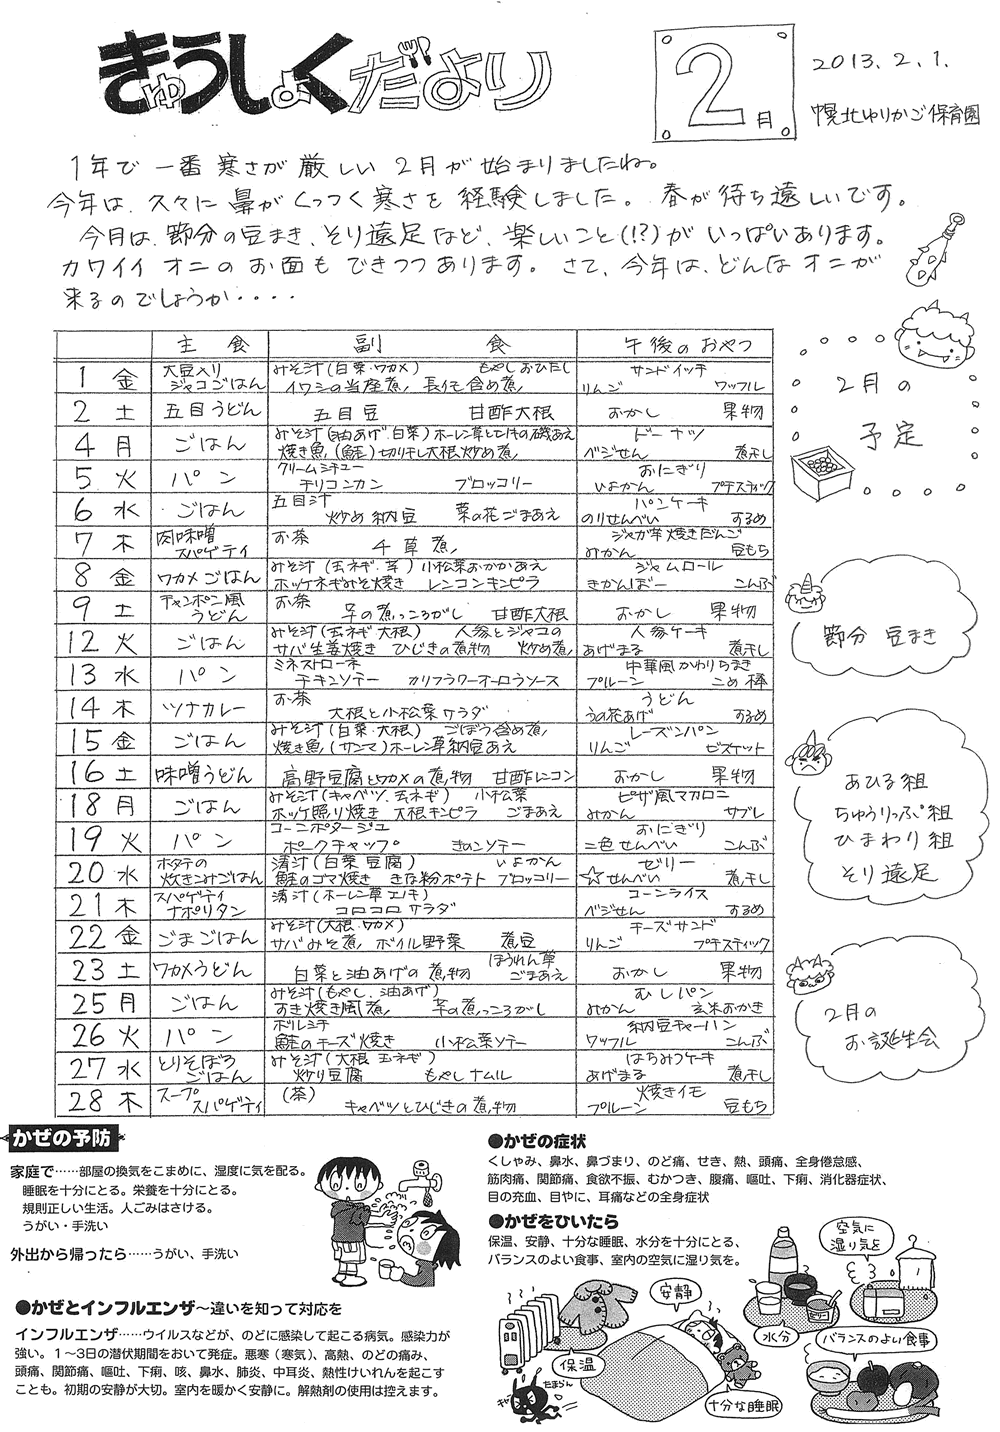 きゅうしょくだより
2月
2013.2.1.
幌北ゆりかご保育園
1年で一番寒さが厳しい2月が始まりましたね。
今年は、久々に鼻がくっつく寒さを経験しました。春が待ち遠しいです。
今月は、節分の豆まき、そり遠足など、楽しいこと(!?)がいっぱいあります。
カワイイオニのお面もできつつあります。さて、今年は、どんなオニが
来るのでしょうか・・・・
主食 副食 午後のおやつ
1 金 大豆入りジャコごはん みそ汁(白菜・ワカメ) もやしおひたし イワシの当座煮、長イモ含め煮 サンドイッチ りんご ワッフル
2 土 五目うどん 五目豆 甘酢大根 おかし 果物
4 月 ごはん みそ汁(油あげ.白菜) ホーレン草とエノキの磯あえ 焼き魚(鮭) 切り干し大根炒め煮 ドーナツ ベジせん 煮干し
5 火 パン クリームシチュー チリコンカン ブロッコリー おにぎり いよかん プチスティック
6 水 ごはん 五目汁 炒め納豆 菜の花ごまあえ パンケーキ のりせんべい するめ
7 木 肉味噌スパゲティ お茶 千草煮 ジャガ芋焼きだんご みかん 豆もち
8 金 ワカメごはん みそ汁(玉ネギ.芋) 小松菜おかかあえ ホッケネギみそ焼き レンコンキンピラ ジャムロール きかんぼー こんぶ
9 土 チャンポン風うどん お茶 芋の煮っころがし 甘酢大根 おかし 果物
12 火 ごはん みそ汁(玉ネギ.大根) 人参とジャコの炒め煮 サバ生姜焼き ひじきの煮物 人参ケーキ あげまる 煮干し
13 水 パン ミネストローネ チキンソテー カリフラワーオーロラソース 中華風かわりちまき プルーン こめ棒
14 木 ツナカレー お茶 大根と小松菜サラダ うどん うの花あげ するめ
15 金 ごはん みそ汁(白菜・大根) ごぼう含め煮 焼き魚(サンマ) ホーレン草納豆あえ レーズンパン りんご ビスケット
16 土 味噌うどん 高野豆腐とワカメの煮物 甘酢ニコン おかし 果物
18 月 ごはん みそ汁(キャベツ.玉ネギ) 小松菜ごまあえ ホッケ照り焼き 大根キンピラ ピザ風マカロニ みかん サブレ
19 火 パン コーンポタージュ ポークチャップ きのこソテー おにぎり 二色せんべい こんぶ
20 水 ホタテの炊きこみごはん 清汁(白菜 豆腐) いよかん 鮭のゴマ焼き きな粉ポテト ブロッコリー ゼリー ☆せんべい 煮干し
21 木 スパゲティナポリタン 清汁(ホーレン草 エノキ) コロコロサラダ コーンライス ベジせん するめ
22 金 ごまごはん みそ汁(大根.ワカメ) サバみそ煮 ボイル野菜 煮豆 チーズサンド りんご プチスティック
23 土 ワカメうどん 白菜と油あげの煮物 ほうれん草ごまあえ おかし 果物
25 月 ごはん みそ汁(もやし.油あげ) すき焼き風煮 芋の煮っころがし むしパン みかん 玄米おかき
26 火 パン ボルシチ 鮭のチーズ焼き 小松菜ソテー 納豆チャーハン ワッフル こんぶ
27 水 とりそぼろごはん みそ汁(大根 玉ネギ) 炒り豆腐 もやしナムル はちみつケーキ あげまる 煮干し
28 木 スープスパゲティ (茶) キャベツとひじきの煮物 焼きイモ プルーン 豆もち
2月の
予定
節分 豆まき
あひる組
ちゅうりっぷ組
ひまわり組
そり遠足
2月の
お誕生会
かぜの予防
家庭で……部屋の換気をこまめに、湿度に気を配る。
睡眠を十分にとる。栄養を十分にとる。
規則正しい生活。人ごみはさける。
うがい・手洗い
外出から帰ったら……うがい、手洗い
●かぜとインフルエンザ〜違いを知って対応を
インフルエンザ……ウイルスなどが、のどに感染して起こる病気。感染力が
強い。1〜3日の潜伏期間をおいて発症。悪寒（寒気）、高熱、のどの痛み、
頭痛、関節痛、嘔吐、下痢、咳、鼻水、肺炎、中耳炎、熱性けいれんを起こす
ことも。初期の安静が大切。室内を暖かく安静に。解熱剤の使用は控えます。
●かぜの症状
くしゃみ、鼻水、鼻づまり、のど痛、せき、熱、頭痛、全身倦怠感、
筋肉痛、関節痛、食欲不振、むかつき、腹痛、嘔吐、下痢、消化器症状、
目の充血、目やに、耳痛などの全身症状
●かぜをひいたら
保温、安静、十分な睡眠、水分を十分にとる、
バランスのよい食事、室内の空気に湿り気を。
空気に
湿り気を
安静
水分
バランスのよい食事
保温
十分な睡眠
キャー
たまらん